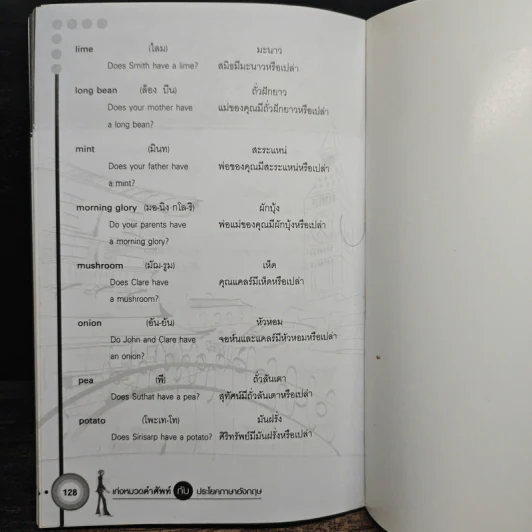 lime (ไลม) มะนาว
Does Smith have a lime? สมิธมีมะนาวหรือเปล่า
long bean (ล็อง บีน) ถั่วฝักยาว
Does your mother have แม่ของคุณมีถั่วฝักยาวหรือเปล่า
a long bean?
mint (มินท) สะระแหน่
Does your father have พ่อของคุณมีสะระแหน่หรือเปล่า
a mint?
morning glory (มอ-นิง-กโล-ริ) ผักบุ้ง
Do your parents have พ่อแม่ของคุณมีผักบุ้งหรือเปล่า
a morning glory?
mushroom (มัฌ-รูม) เห็ด
Does Clare have คุณแคลร์มีเห็ดหรือเปล่า
a mushroom?
onion (อัน-ยัน) หัวหอม
Do John and Clare have จอห์นและแคลร์มีหัวหอมหรือเปล่า
an onion?
pea (พี) ถั่วลันเตา
Does Suthat have a pea? สุทัศน์มีถั่วลันเตาหรือเปล่า
potato (โพะเท-โท) มันฝรั่ง
Does Sirisarp have a potato? ศิริทรัพย์มีมันฝรั่งหรือเปล่า
128 เก่งหมวดคำศัพท์ กับ ประโยคภาษาอังกฤษ